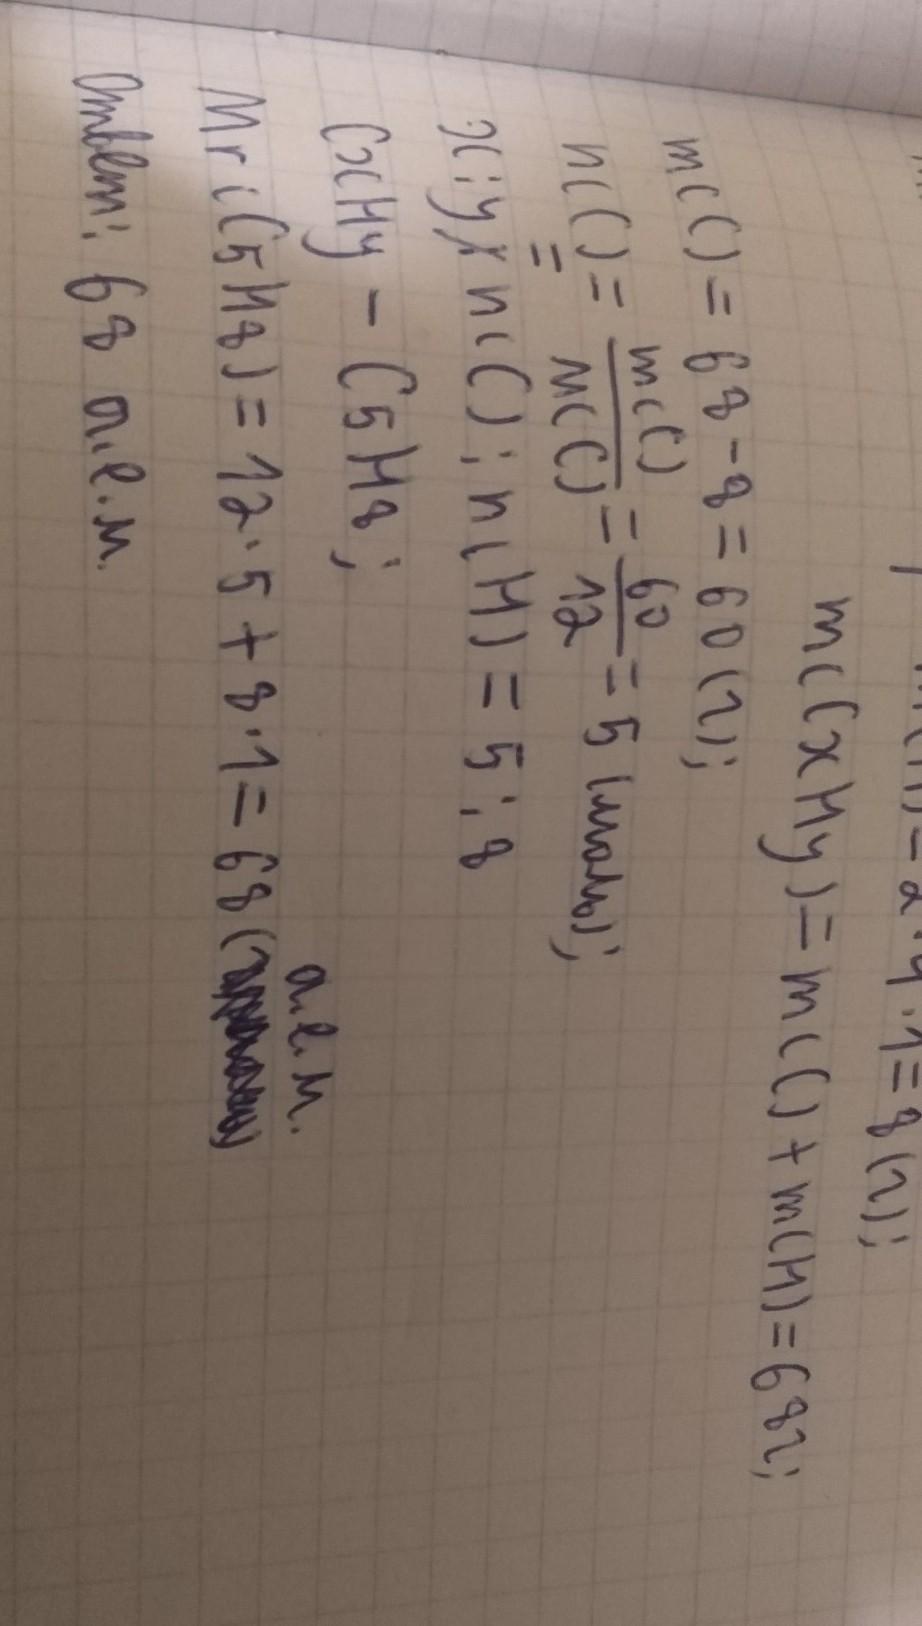 m(H)=2·4·1=8(г);
m(CxHy)=m(C)+m(H)=68г;
m(C)=68-8=60(г);
n(C)=m(C)/M(C)=60/12=5(моль);
x:y=n(C):n(H)=5:8
CxHy-C5H8;
Mr(C5H8)=12·5+8·1=68 а.е.м.
Ответ: 68 а.е.м.